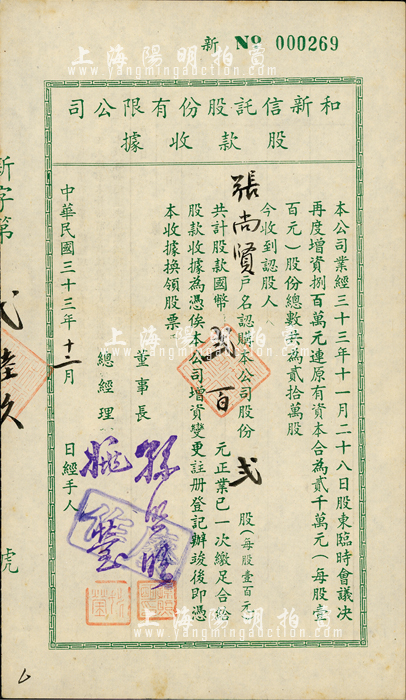 新 No 000269
和新信託股份有限公司
股款收據
本公司業經三十三年十一月二十八日股東臨時會議决
再度增資捌百萬元連原有資本合為貳千萬元(每股壹
百元)股份總數共為貳拾萬股
今收到認股人張尚賢戶名認購本公司股份貳股(每股壹百元)
共計股款國幣貳百元正業已一次繳足合給
股款收據為憑俟本公司增資變更註册登記辦竣後即憑
本收據換領股票
董事長
總經理
經手人
中華民國三十三年十二月 日
新字第 弍陸玖 號
上海陽明拍賣
www.yangmingauction.com